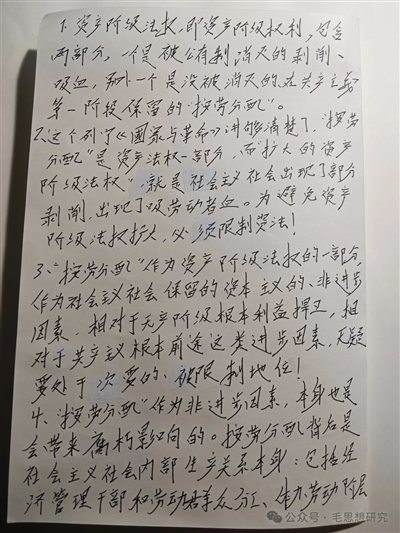 1. 资产阶级法权,即资产阶级权利,包含
两部分,一个是被公有制消灭的剥削、
吸血,另外一个是没被消灭的在共产主义
第一阶段保留的“按劳分配”。
2. 这个列宁《国家与革命》讲够清楚了,“按劳
分配”是资产法权一部分,而“扩大的资产
阶级法权”,就是社会主义社会出现了部分
剥削,出现了吸劳动者血。为避免资产
阶级法权扩大,必须限制资法!
3.“按劳分配”作为资产阶级法权的一部分,
作为社会主义社会保留的资本主义的、非进步
因素,相对于无产阶级根本利益捍卫,相
对于共产主义根本前途这类进步因素,无疑
要处于次要的、被限制地位!
4.“按劳分配”作为非进步因素,本身也是
会带来腐朽影响的。按劳分配背后是
社会主义社会内部生产关系本身:包括经
济管理干部和劳动者群众分工、体力劳动阶层
公众号·毛思想研究